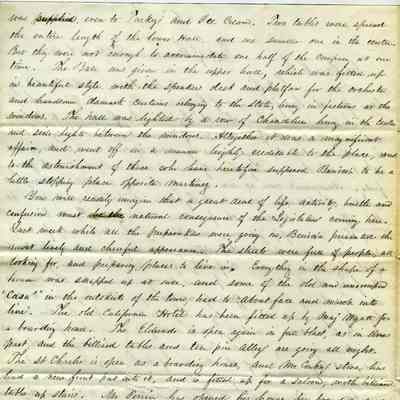 was supplied, even to Turkeys and Ice Cream. Two tables were spread
the entire length of the lower Hall, and one smaller one in the centre.
But they were not enough to accommodate one half of the company at one
time. The Ball was given in the upper hall, which was fitted up
in beautiful style with the speakers desk and platform for the orchestra
and handsome damask curtains belonging to the State, hung in festoons at the
windows. The hall was lighted by a row of Chandeliers hung in the centre
and side lights between the windows. Altogether it was a magnificent
affair, and went off in a manner highly creditable to the place, and
to the astonishment of those who have heretofore supposed Benicia to be a
little stopping place opposite Martinez.
You will readily imagine that a great deal of life activity, bustle and
confusion must be the natural consequence of the Legislature coming here.
Last week while all the preparations were going on, Benicia presented the
most lively and cheerful appearance. The streets were full of people, all
looking for, and preparing places to live in. Everything in the shape of a
house was snapped up at once, and some of the old and unoccupied
"Casas" in the outskirts of the town, had to "about face and march into
line". The old California Hotel has been fitted up by Maj. Wyatt for
a boarding house. The Eldorado is open again in full blast, as in times
past, and the billiard tables and ten pin Alley are going all night.
The St Charles is open as a boarding house, and store, has
had a new front put into it, and is fitted up for a saloon, with billiard
table up stairs. has opened his house for